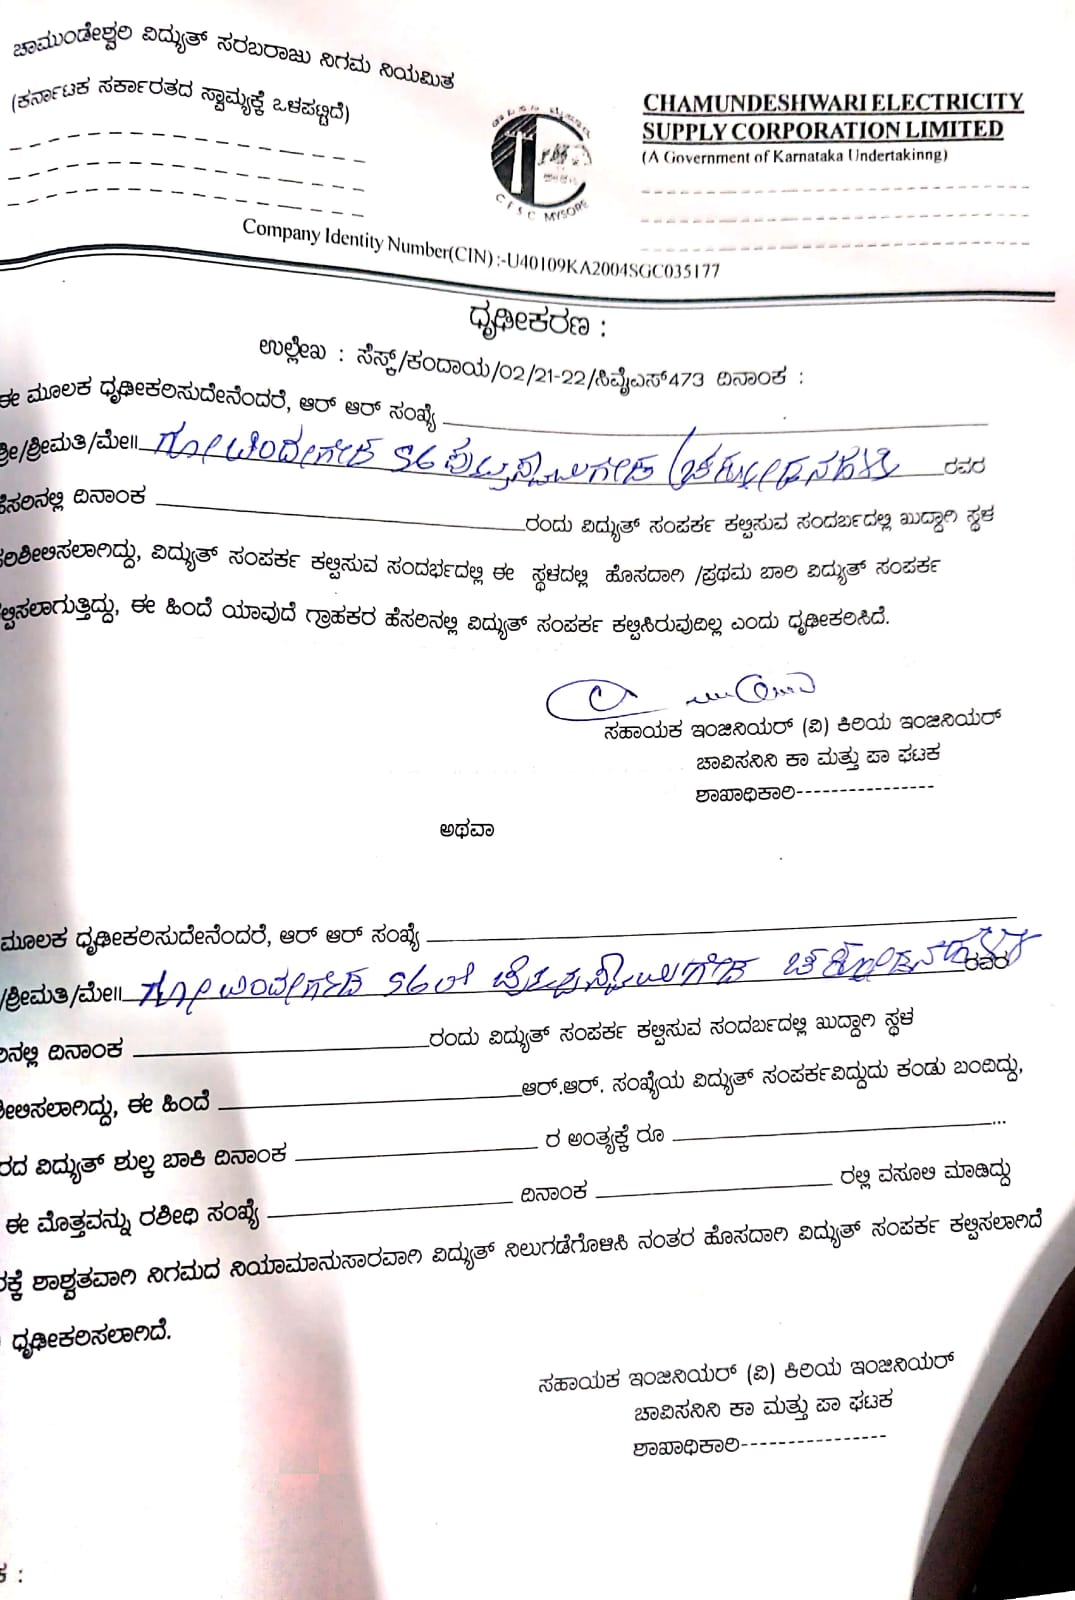 ಚಾಮುಂಡೇಶ್ವರಿ ವಿದ್ಯುತ್ ಸರಬರಾಜು ನಿಗಮ ನಿಯಮಿತ
(ಕರ್ನಾಟಕ ಸರ್ಕಾರತದ ಸ್ವಾಮ್ಯಕ್ಕೆ ಒಳಪಟ್ಟಿದೆ)
CHAMUNDESHWARI ELECTRICITY
SUPPLY CORPORATION LIMITED
(A Government of Karnataka Undertakinng)
C E S C MYSORE
Company Identity Number(CIN) :-U40109KA2004SGC035177
ಧೃಢೀಕರಣ :
ಉಲ್ಲೇಖ : ಸೆಸ್ಕ್/ಕಂದಾಯ/02/21-22/ಸಿವೈಎಸ್473 ದಿನಾಂಕ :
ಈ ಮೂಲಕ ಧೃಢೀಕರಿಸುದೇನೆಂದರೆ, ಆರ್ ಆರ್ ಸಂಖ್ಯೆ
ಶ್ರೀ/ಶ್ರೀಮತಿ/ಮೇ॥ ರವರ
ಹೆಸರಿನಲ್ಲಿ ದಿನಾಂಕ ರಂದು ವಿದ್ಯುತ್ ಸಂಪರ್ಕ ಕಲ್ಪಿಸುವ ಸಂದರ್ಬದಲ್ಲಿ ಖುದ್ದಾಗಿ ಸ್ಥಳ
ಪರಿಶೀಲಿಸಲಾಗಿದ್ದು, ವಿದ್ಯುತ್ ಸಂಪರ್ಕ ಕಲ್ಪಿಸುವ ಸಂದರ್ಭದಲ್ಲಿ ಈ ಸ್ಥಳದಲ್ಲಿ ಹೊಸದಾಗಿ /ಪ್ರಥಮ ಬಾರಿ ವಿದ್ಯುತ್ ಸಂಪರ್ಕ
ಕಲ್ಪಿಸಲಾಗುತ್ತಿದ್ದು, ಈ ಹಿಂದೆ ಯಾವುದೆ ಗ್ರಾಹಕರ ಹೆಸರಿನಲ್ಲಿ ವಿದ್ಯುತ್ ಸಂಪರ್ಕ ಕಲ್ಪಿಸಿರುವುದಿಲ್ಲ ಎಂದು ಧೃಢೀಕರಿಸಿದೆ.
ಸಹಾಯಕ ಇಂಜಿನಿಯರ್ (ವಿ) ಕಿರಿಯ ಇಂಜಿನಿಯರ್
ಚಾವಿಸನಿನಿ ಕಾ ಮತ್ತು ಪಾ ಘಟಕ
ಶಾಖಾಧಿಕಾರಿ----------------
ಅಥವಾ
ಮೂಲಕ ಧೃಢೀಕರಿಸುದೇನೆಂದರೆ, ಆರ್ ಆರ್ ಸಂಖ್ಯೆ
/ಶ್ರೀಮತಿ/ಮೇ॥ ರವರ
ರಿನಲ್ಲಿ ದಿನಾಂಕ ರಂದು ವಿದ್ಯುತ್ ಸಂಪರ್ಕ ಕಲ್ಪಿಸುವ ಸಂದರ್ಬದಲ್ಲಿ ಖುದ್ದಾಗಿ ಸ್ಥಳ
ಶೀಲಿಸಲಾಗಿದ್ದು, ಈ ಹಿಂದೆ ಆರ್.ಆರ್. ಸಂಖ್ಯೆಯ ವಿದ್ಯುತ್ ಸಂಪರ್ಕವಿದ್ದುದು ಕಂಡು ಬಂದಿದ್ದು,
ರದ ವಿದ್ಯುತ್ ಶುಲ್ಕ ಬಾಕಿ ದಿನಾಂಕ ರ ಅಂತ್ಯಕ್ಕೆ ರೂ ...
ಈ ಮೊತ್ತವನ್ನು ರಶೀಧಿ ಸಂಖ್ಯೆ ದಿನಾಂಕ ರಲ್ಲಿ ವಸೂಲಿ ಮಾಡಿದ್ದು
ಕ್ಕೆ ಶಾಶ್ವತವಾಗಿ ನಿಗಮದ ನಿಯಾಮಾನುಸಾರವಾಗಿ ವಿದ್ಯುತ್ ನಿಲುಗಡೆಗೊಳಿಸಿ ನಂತರ ಹೊಸದಾಗಿ ವಿದ್ಯುತ್ ಸಂಪರ್ಕ ಕಲ್ಪಿಸಲಾಗಿದೆ
ಧೃಢೀಕರಿಸಲಾಗಿದೆ.
ಸಹಾಯಕ ಇಂಜಿನಿಯರ್ (ವಿ) ಕಿರಿಯ ಇಂಜಿನಿಯರ್
ಚಾವಿಸನಿನಿ ಕಾ ಮತ್ತು ಪಾ ಘಟಕ
ಶಾಖಾಧಿಕಾರಿ----------------
ಕ :